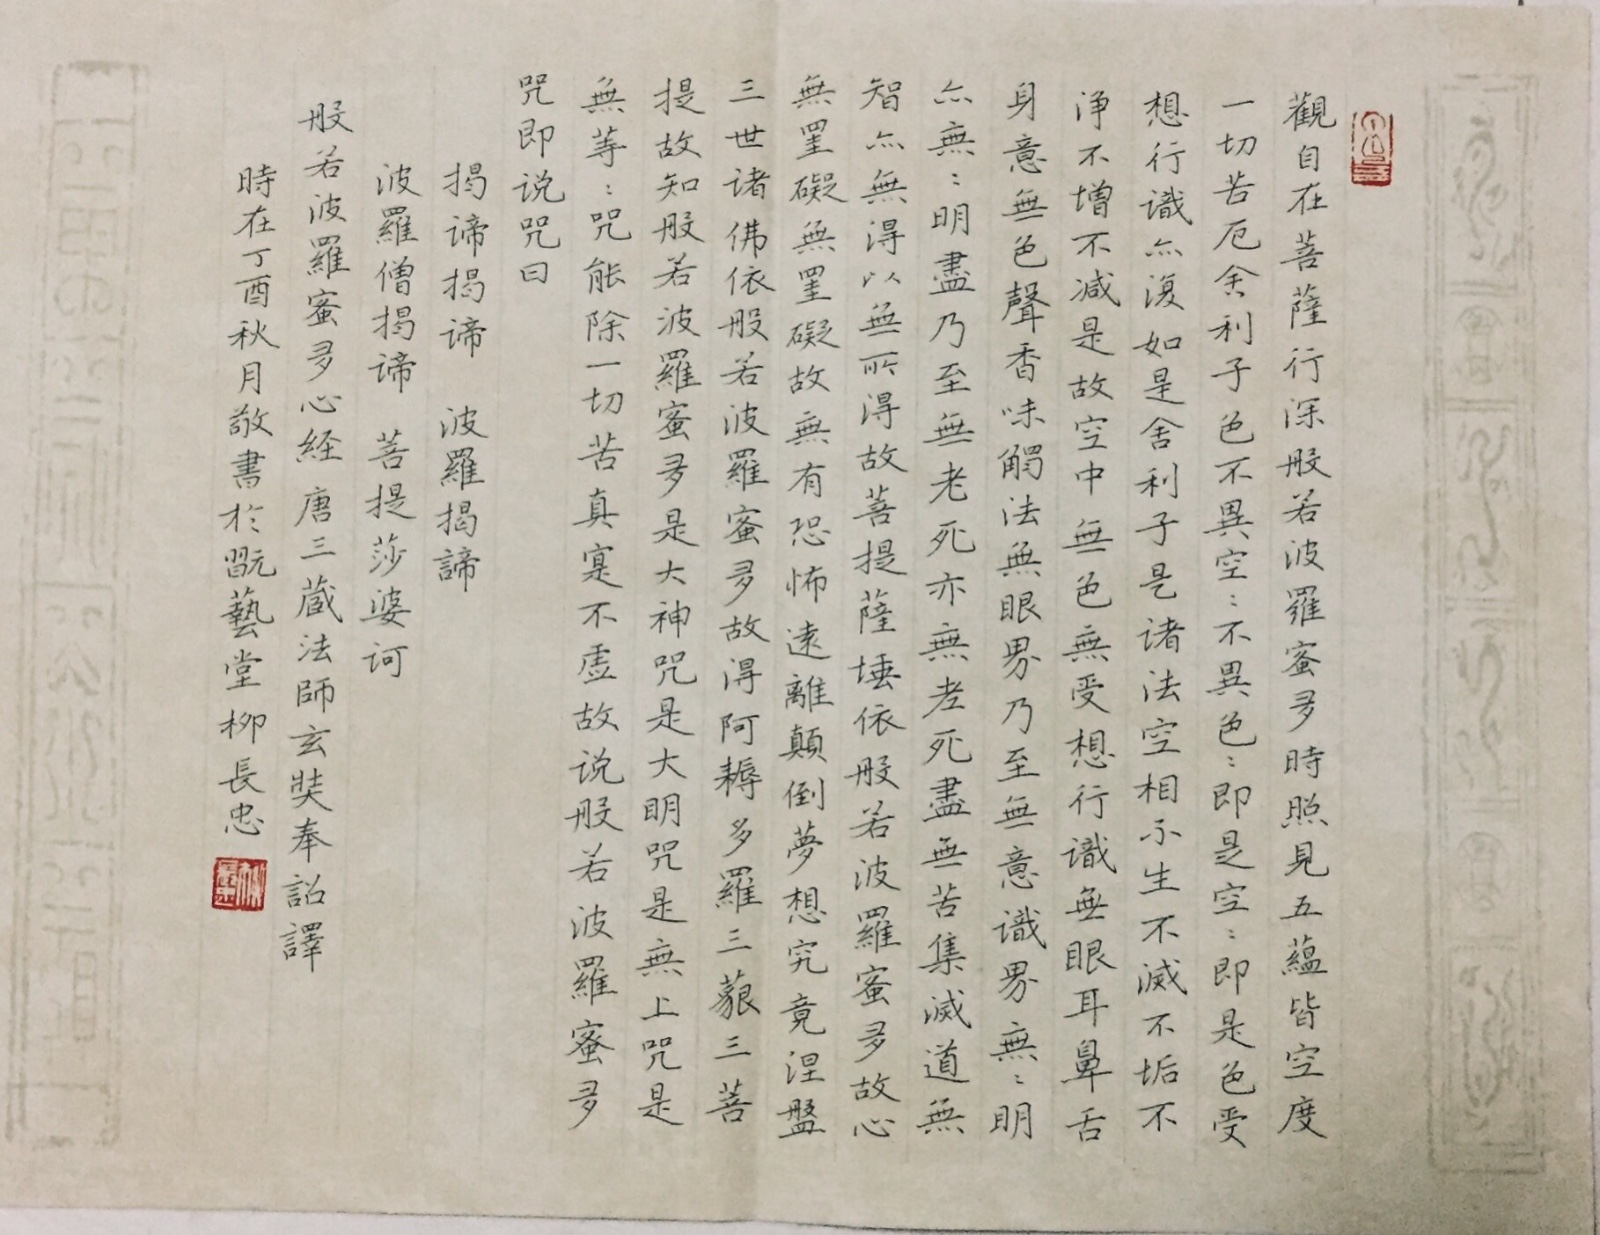 觀自在菩薩行深般若波羅蜜多時照見五蘊皆空度
一切苦厄舍利子色不異空:不異色:即是空:即是色受
想行識亦復如是舍利子是诸法空相不生不滅不垢不
淨不增不减是故空中無色無受想行識無眼耳鼻舌
身意無色聲香味觸法無眼界乃至無意識界無:明
亦無:明盡乃至無老死亦無老死盡無苦集滅道無
智亦無得以無所得故菩提薩埵依般若波羅蜜多故心
無罣礙無罣礙故無有恐怖遠離顛倒夢想究竟涅盤
三世诸佛依般若波羅蜜多故得阿耨多羅三藐三菩
提故知般若波羅蜜多是大神咒是大明咒是無上咒是
無等:咒能除一切苦真寔不虛故说般若波羅蜜多
咒即说咒曰
揭谛揭谛 波羅揭諦
波羅僧揭谛 菩提莎婆诃
般若波羅蜜多心経 唐三蔵法師玄奘奉詔譯
時在丁酉秋月敬書於翫藝堂柳長忠